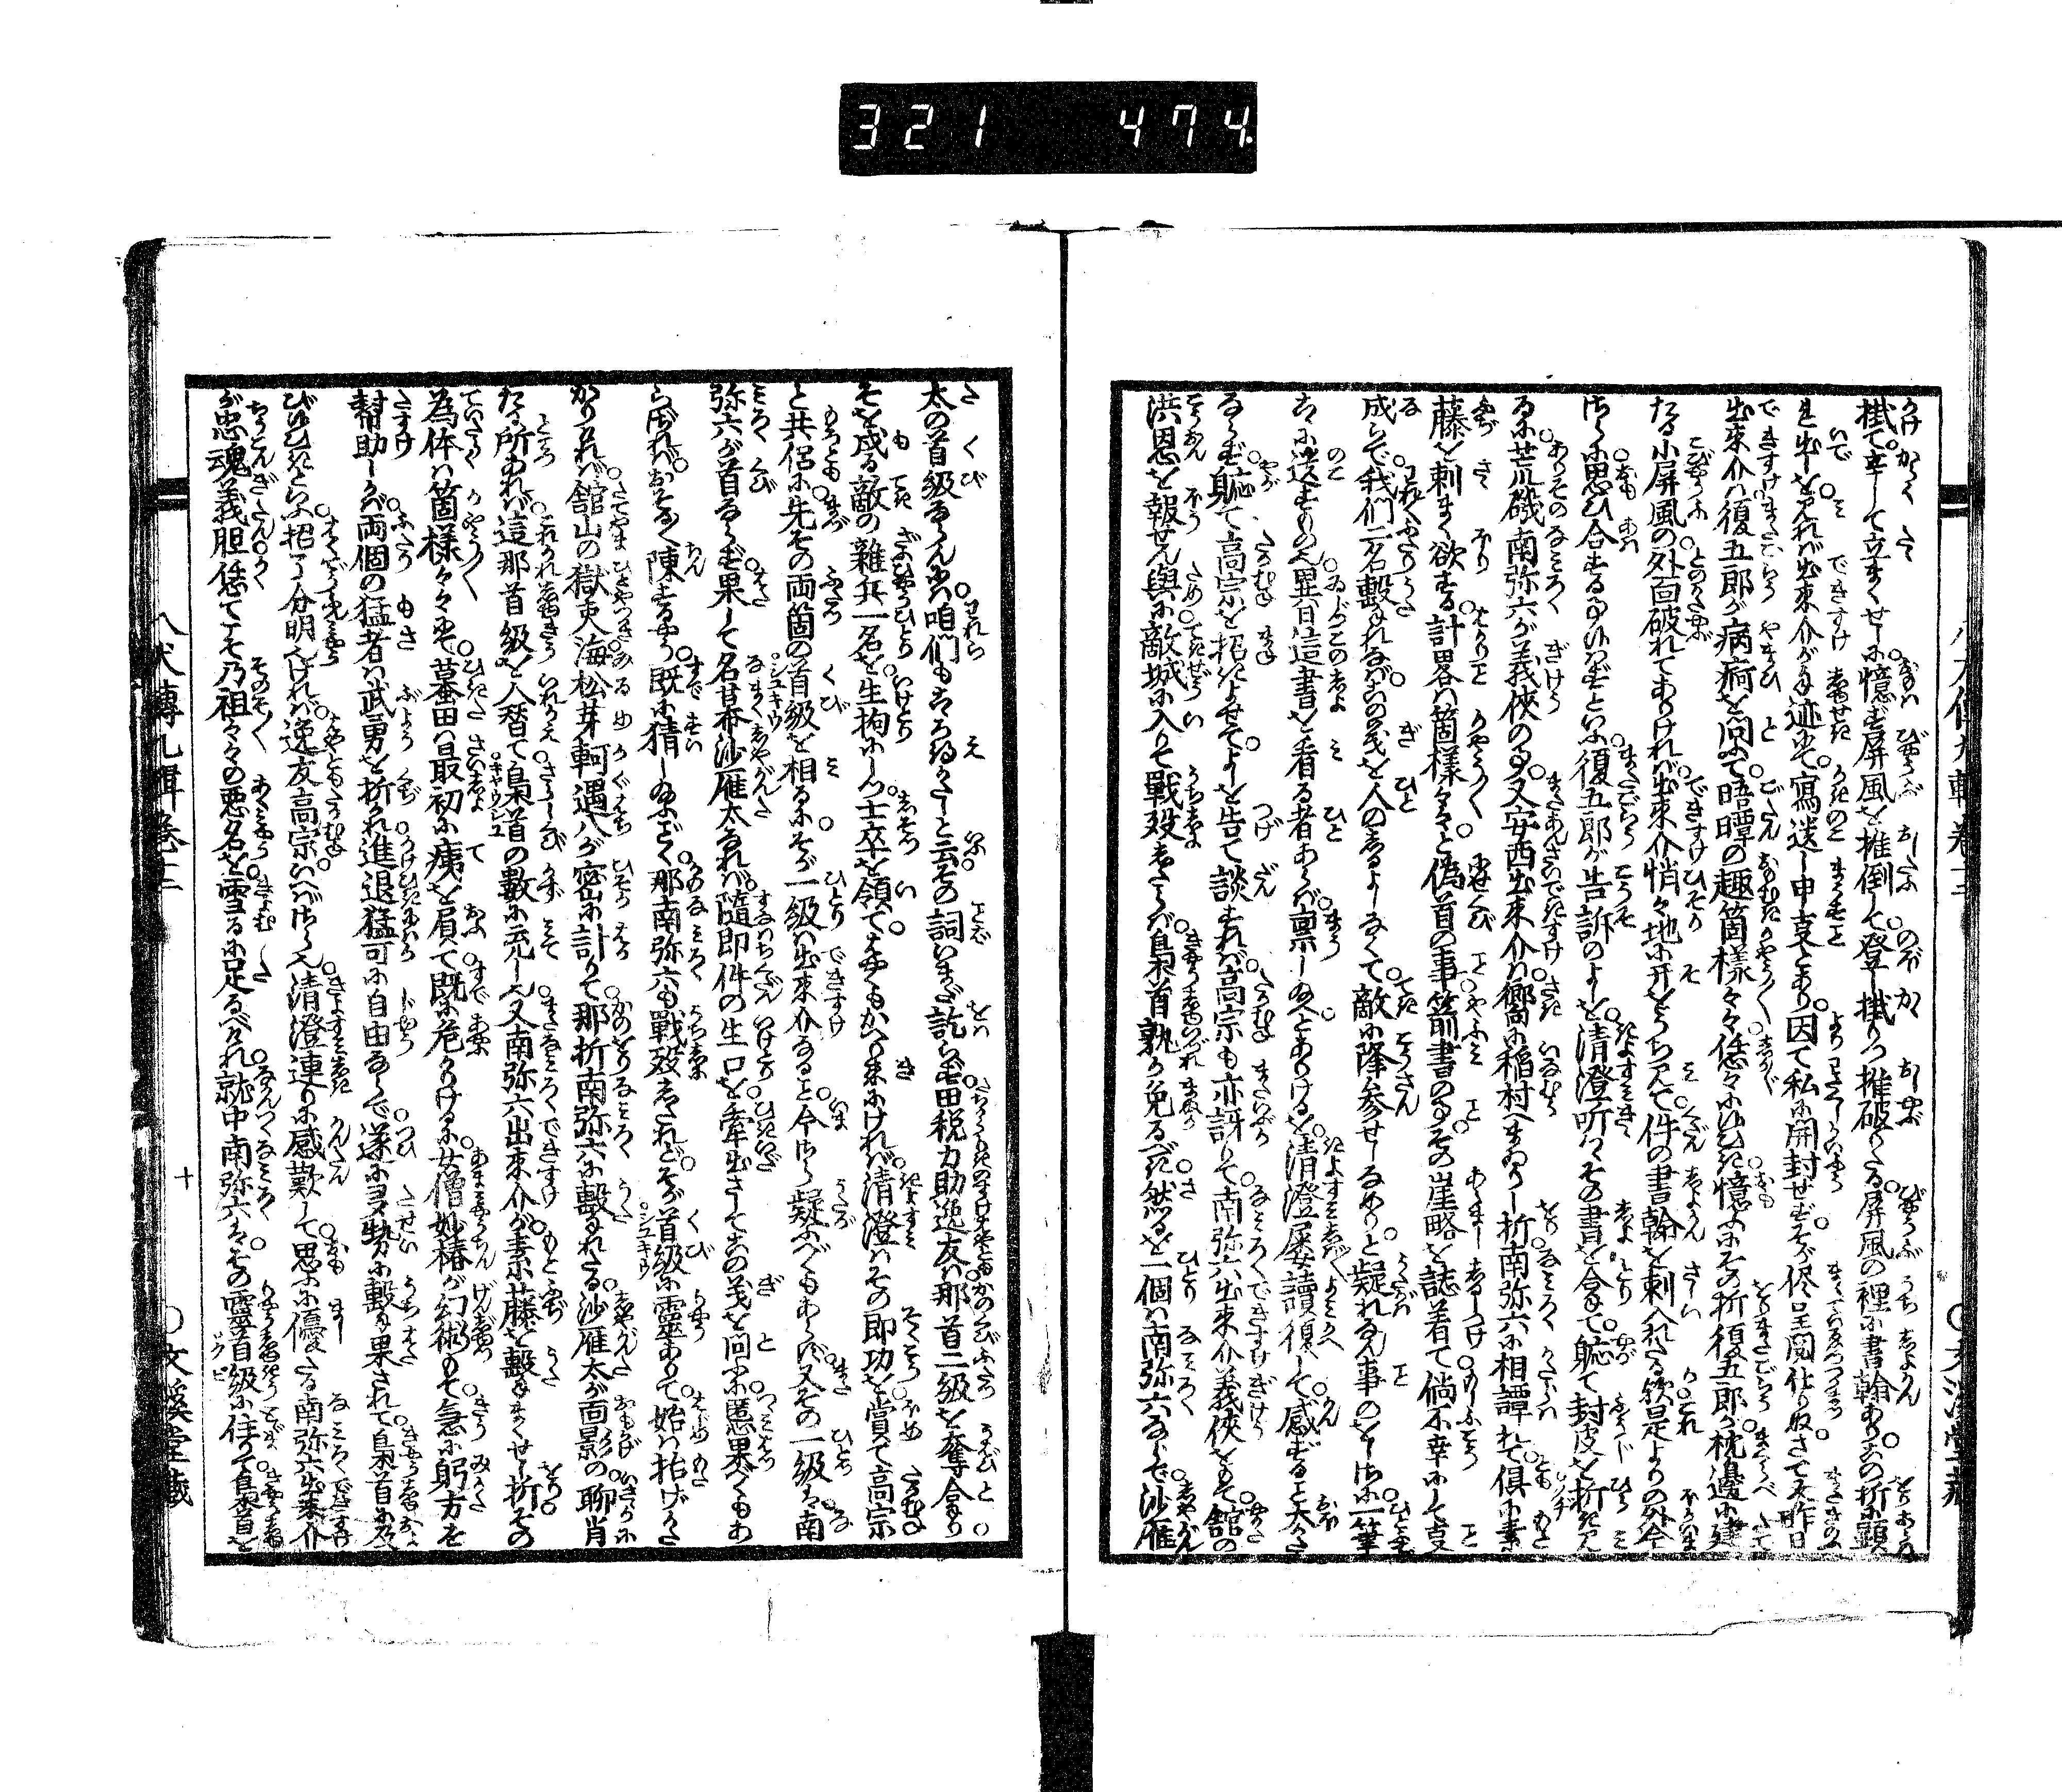 321 474
掛て辛して立まくせしに憶ず屏風を推倒して登し掛りつ推破りたる屏風の裡に書翰ありその折に顕
れ出しを見れば出来介が手迹にて寫送し申こゝとあり因て私に開封せずそが侭呈閲仕り取さてえ昨日
出来介は復五郎が病痾を問て晤譚の趣箇様々々恁々にゆひき憶ふにその折復五郎が枕邊に建
たる小屏風の外面破れてありければ出来介悄々地に开をうち見て件の書翰を刺入れたる欤是よりの外今
さらに思ひ合する事はずといふ復五郎が告訴のよしを清澄听てその書を拿て軈て封皮を折き見
るに荒磯南弥六が義侠の事又安西出来介は嚮に稲村へまゐりし折南弥六に相譚れて倶に素
藤を刺まく欲する計畧は箇様々々と偽首の事箭書の事その崖略を誌着て倘不幸にして事
成らで我們二名撃れなばこの義を人のしるよしなくて敵に降参せしなめりと疑れなん事のをしさに一筆
こゝに遺すもの也異日這書を看る者あらば稟し給へとありけるを清澄屡讀復して感ずること大かた
ならず軈て高宗を招きよせてよしを告て談ずれば高宗も亦訝りて南弥六出来介義侠をもて舘の
洪恩を報せん與に敵城に入りて戰歿したらば梟首孰か免るべき然るを一個は南弥六ならで沙雁
八犬傳九輯巻十二
○文溪堂藏
太の首級ならんには咱們もこゝろ得かたしと云その詞いまだ訖らず田税力助逸友は那首二級を奪拿り
そを戍る敵の雜兵一名を生拘にしつ士卒を領てはやくもかへり来にければ清澄はその即功を賞て高宗
と共侶に先その両箇の首級を相るにそが一級は出来介なること今さら疑ふべくもあらず又その一級は南
弥六が首ならず果して名甚麻沙雁太なれば隨即件の生口を牽出さしてこの義を問ふに匿果べくもあ
らざればおそる〳〵陳ずるやう既に猜し給ふごとく那南弥六も戰歿したれどそが首級に靈ありて始は抬げがた
かりければ舘山の獄吏海松芽軻遇八が密に計りて那折南弥六に撃れたる沙雁太が面影の聊肖
たる所あれば這那首級を入替て梟首の數に充し也又南弥六出来介が素藤を撃まくせし折その
為体は箇様々々にて蟇田は最初に痍を肩て既に危かりけるに女僧妙椿が幻術もて急に躬方を
幇助しかば両個の猛者は武勇を折れ進退猛可に自由ならで遂に多勢に撃果されて梟首に及
びゆひきといふ招了分明なければ逸友高宗はいへばさら也清澄連りに感歎して思ふに優たる南弥六出来介
が忠魂義胆恁てこそ乃祖々々の悪名を雪るに足るべけれ就中南弥六はその靈首級に住りて梟首を
八犬傳九輯巻十二
十
○文溪堂藏